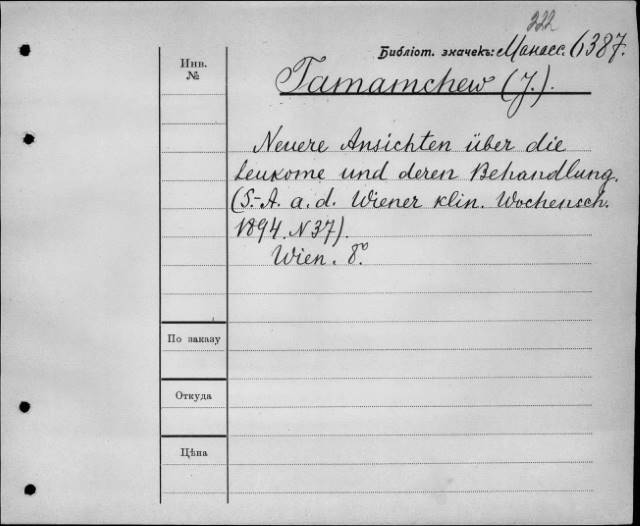 222
Библіот. значекъ: Манасс. 6387.
Инв.
№
Tamamchew (J.).
Neuere Ansichten über die
Leukome und deren Behandlung.
(S.-A. a. d. Wiener klin. Wochensch.
1894. N 37).
Wien. 8°.
По заказу
Откуда
Цѣна